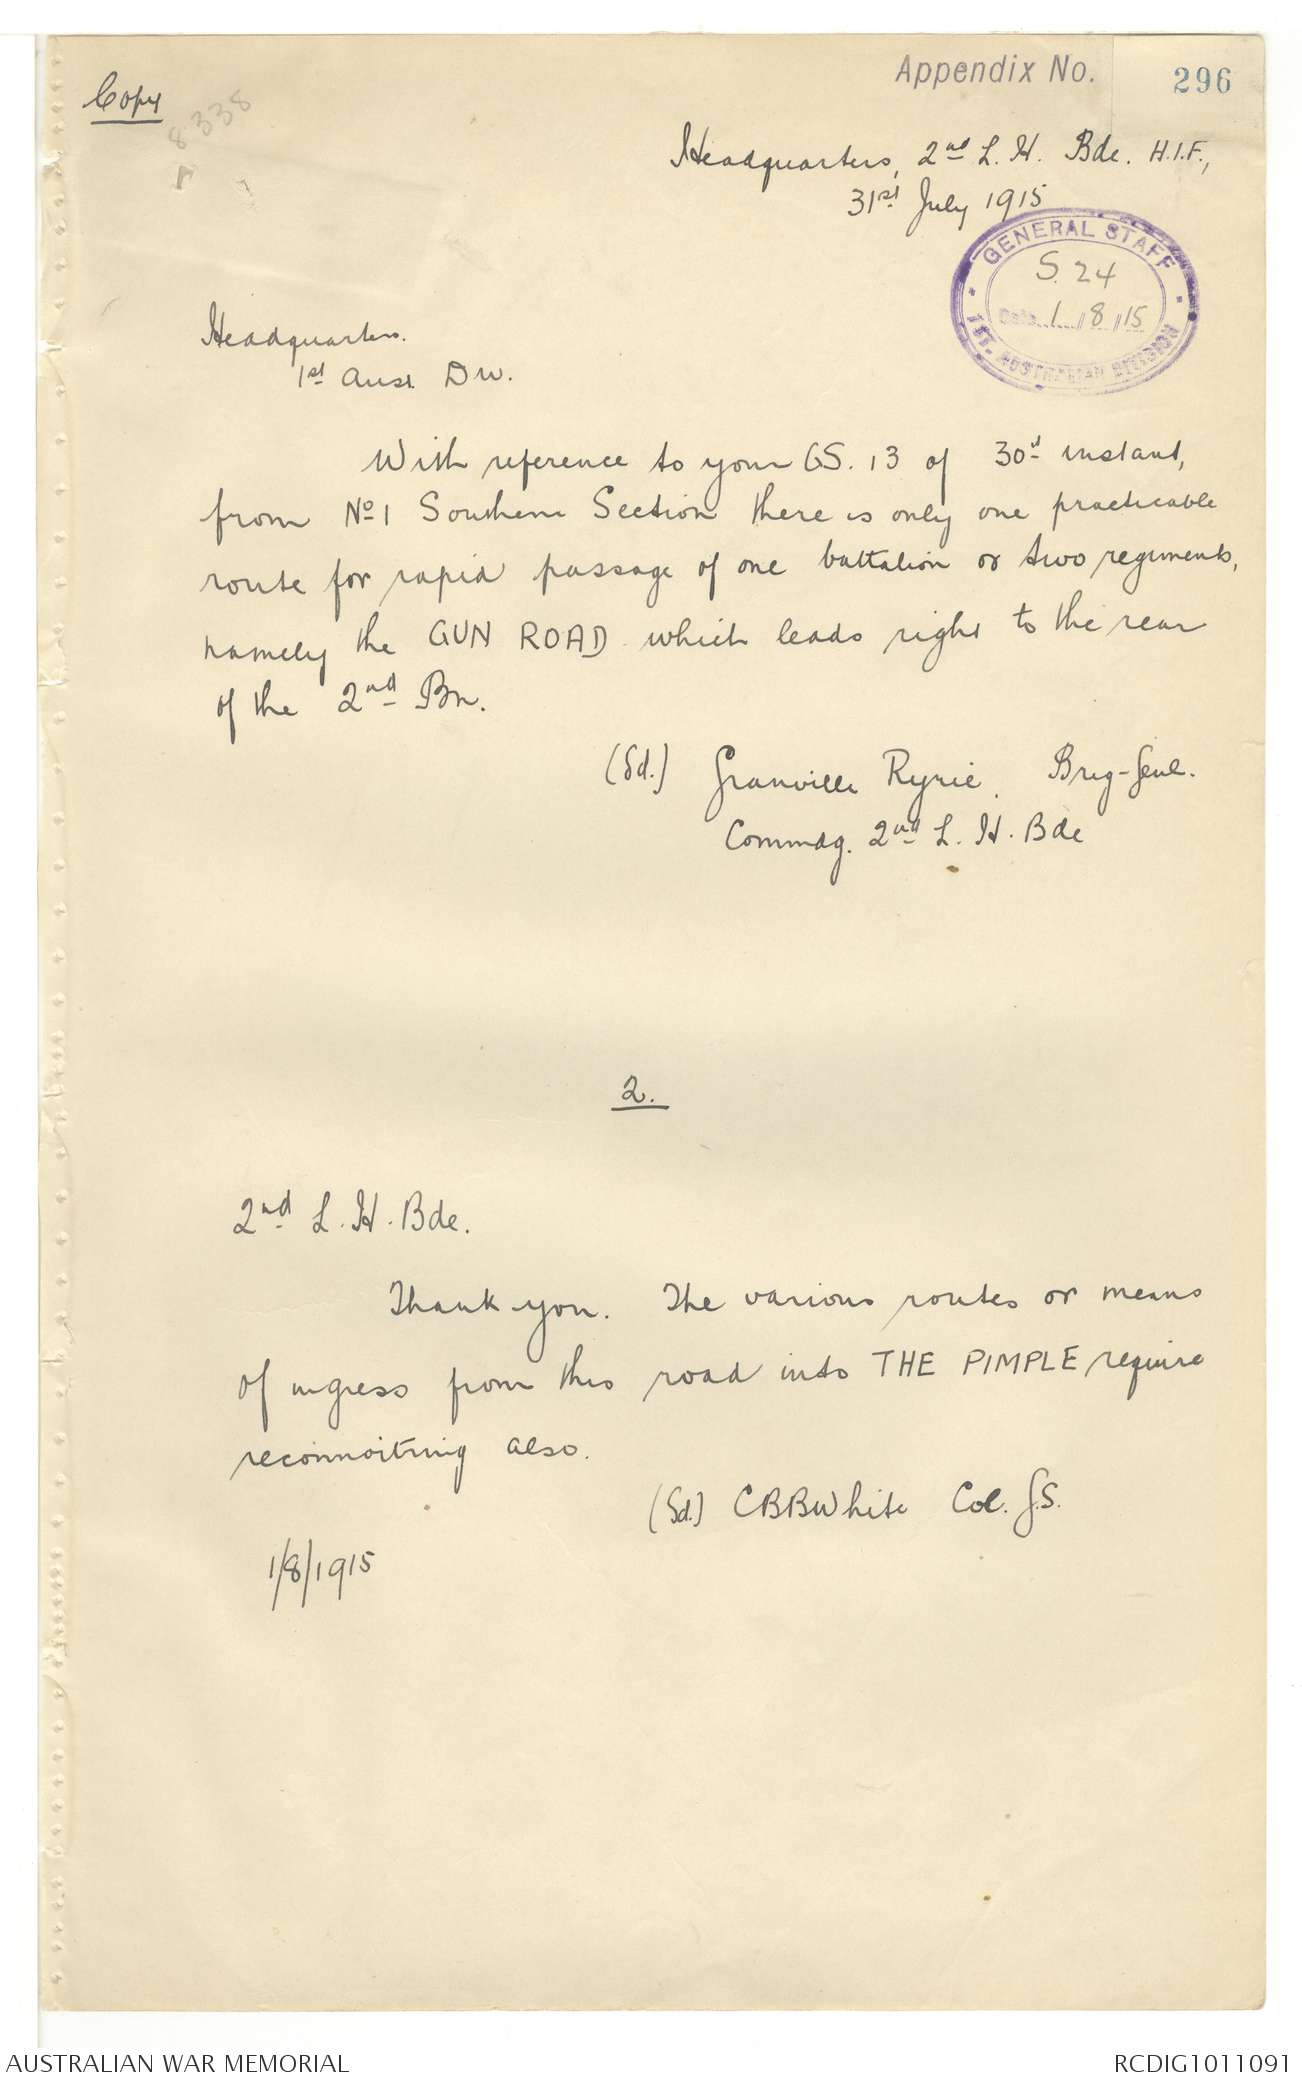 Copy
8338
Appendix No. 296
Headquarters, 2nd L. H. Bde. A.I.F.,
31st July 1915
GENERAL STAFF
S. 24
Date 1/8/15
1ST. AUSTRALIAN DIVISION
Headquarters.
1st Aust. Div.
With reference to your GS. 13 of 30th instant,
from No 1 Southern Section there is only one practicable
route for rapid passage of one battalion or two regiments,
namely the GUN ROAD which leads right to the rear
of the 2nd Bn.
(Sd.) Granville Ryrie. Brig-Genl.
Commdg. 2nd L. H. Bde
2.
2nd L. H. Bde.
Thank you. The various routes or means
of ingress from this road into THE PIMPLE require
reconnoitring also.
(Sd.) CBBWhite Col. G.S.
1/8/1915
AUSTRALIAN WAR MEMORIAL
RCDIG1011091